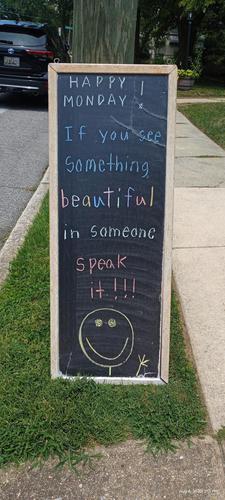 HAPPY
MONDAY!
If you see
something
beautiful
in someone
speak
it!!!